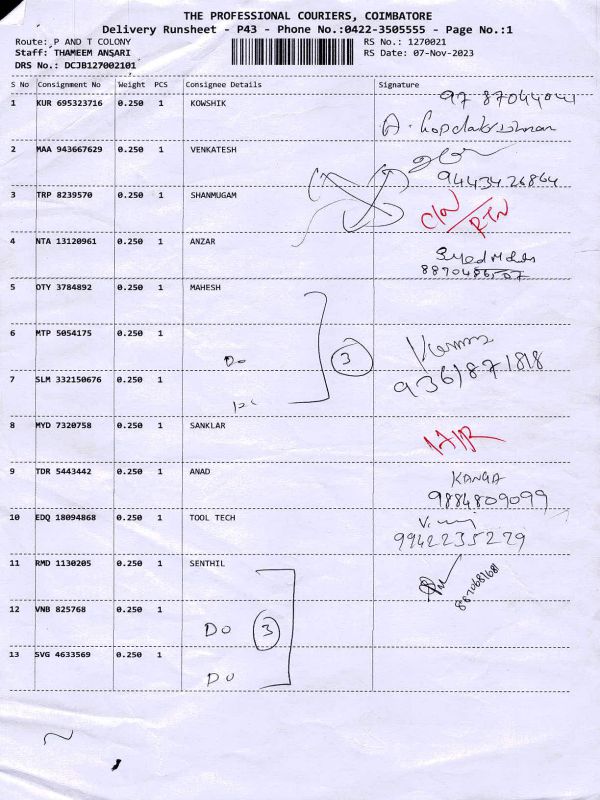 THE PROFESSIONAL COURIERS, COIMBATORE
Delivery Runsheet - P43 - Phone No.:0422-3505555 - Page No.:1
Route: P AND T COLONY RS No.: 1270021
Staff: THAMEEM ANSARI RS Date: 07-Nov-2023
DRS No.: DCJB127002101
S No Consignment No Weight PCS Consignee Details Signature
1 KUR 695323716 0.250 1 KOWSHIK
2 MAA 943667629 0.250 1 VENKATESH
9443426864
3 TRP 8239570 0.250 1 SHANMUGAM
RTN
4 NTA 13120961 0.250 1 ANZAR
5 OTY 3784892 0.250 1 MAHESH
6 MTP 5054175 0.250 1
Do 3
9361871818
7 SLM 332150676 0.250 1
8 MYD 7320758 0.250 1 SANKLAR
9 TDR 5443442 0.250 1 ANAD KANGA
9884809099
10 EDQ 18094868 0.250 1 TOOL TECH
9942235229
11 RMD 1130205 0.250 1 SENTHIL
8870681681
12 VNB 825768 0.250 1
DO 3
13 SVG 4633569 0.250 1
DO